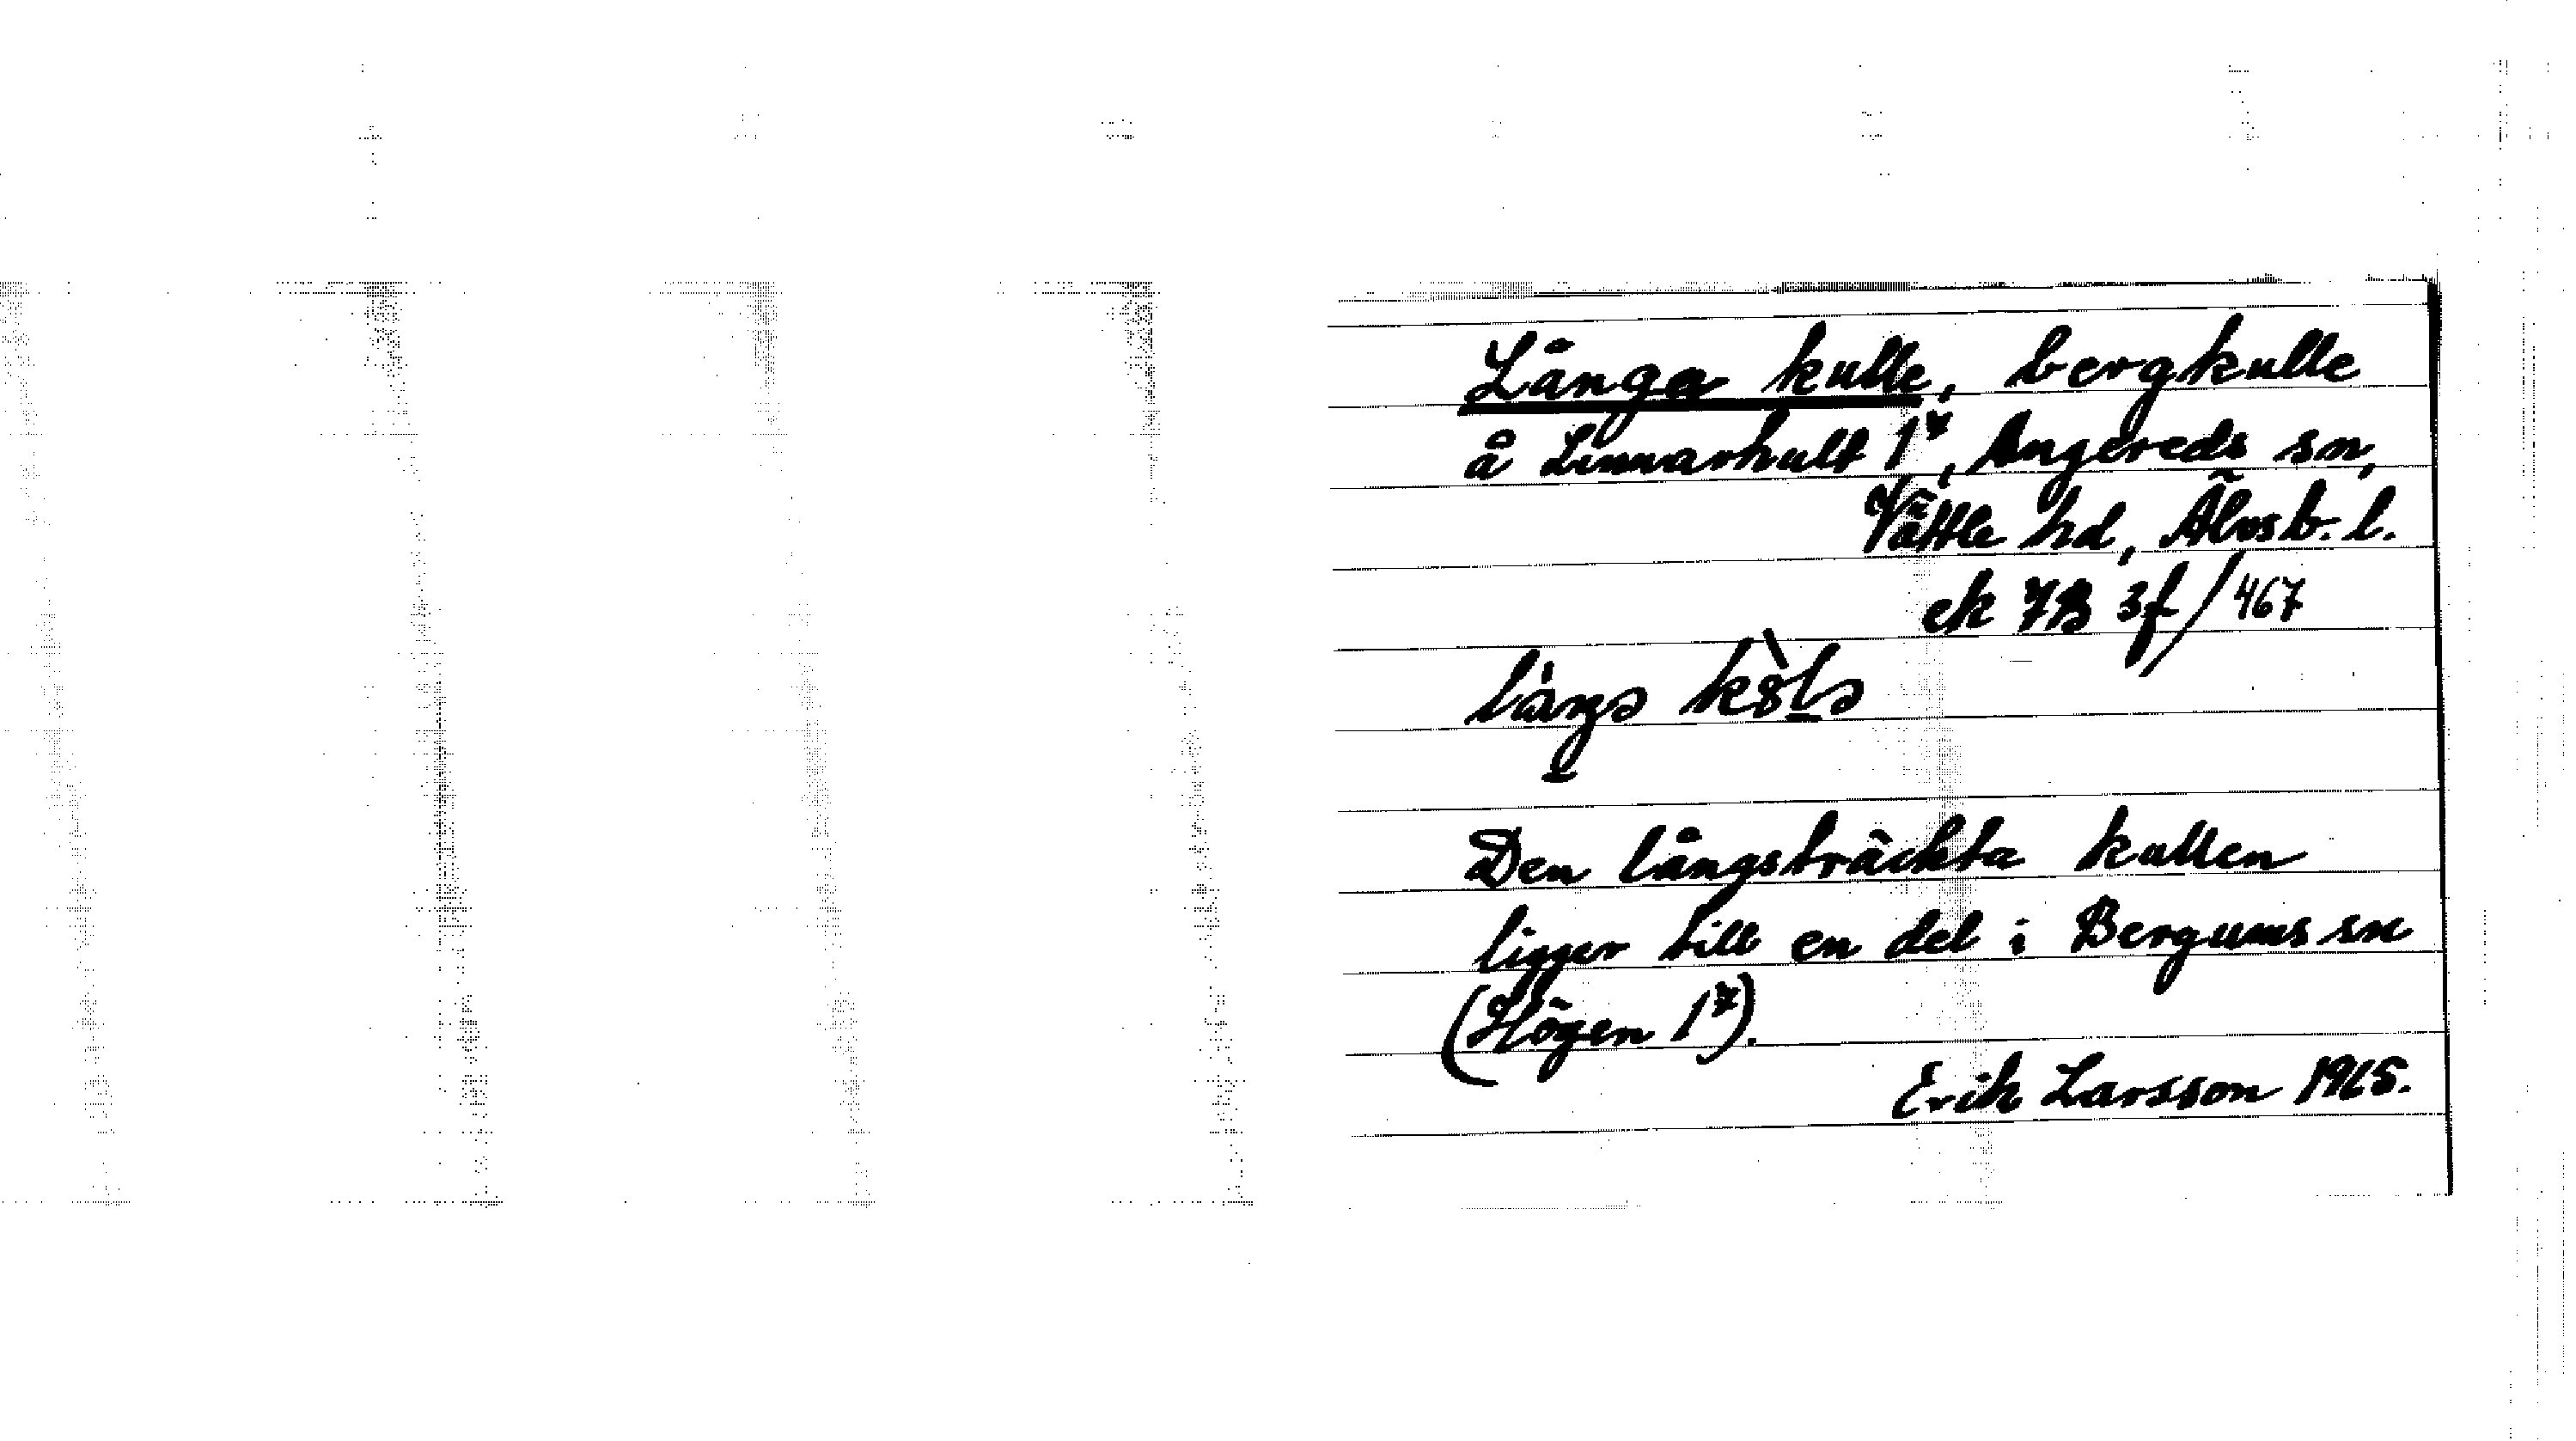 Långa kulle, bergkulle
å Linnarhult 1⁴, Angereds sn,
Vättle hd, Älvsb. l.
ek 7B 3f/467
Den långsträckta kullen
ligger till en del i Bergums sn
(Högen 1⁷).
Erik Larsson 1965.